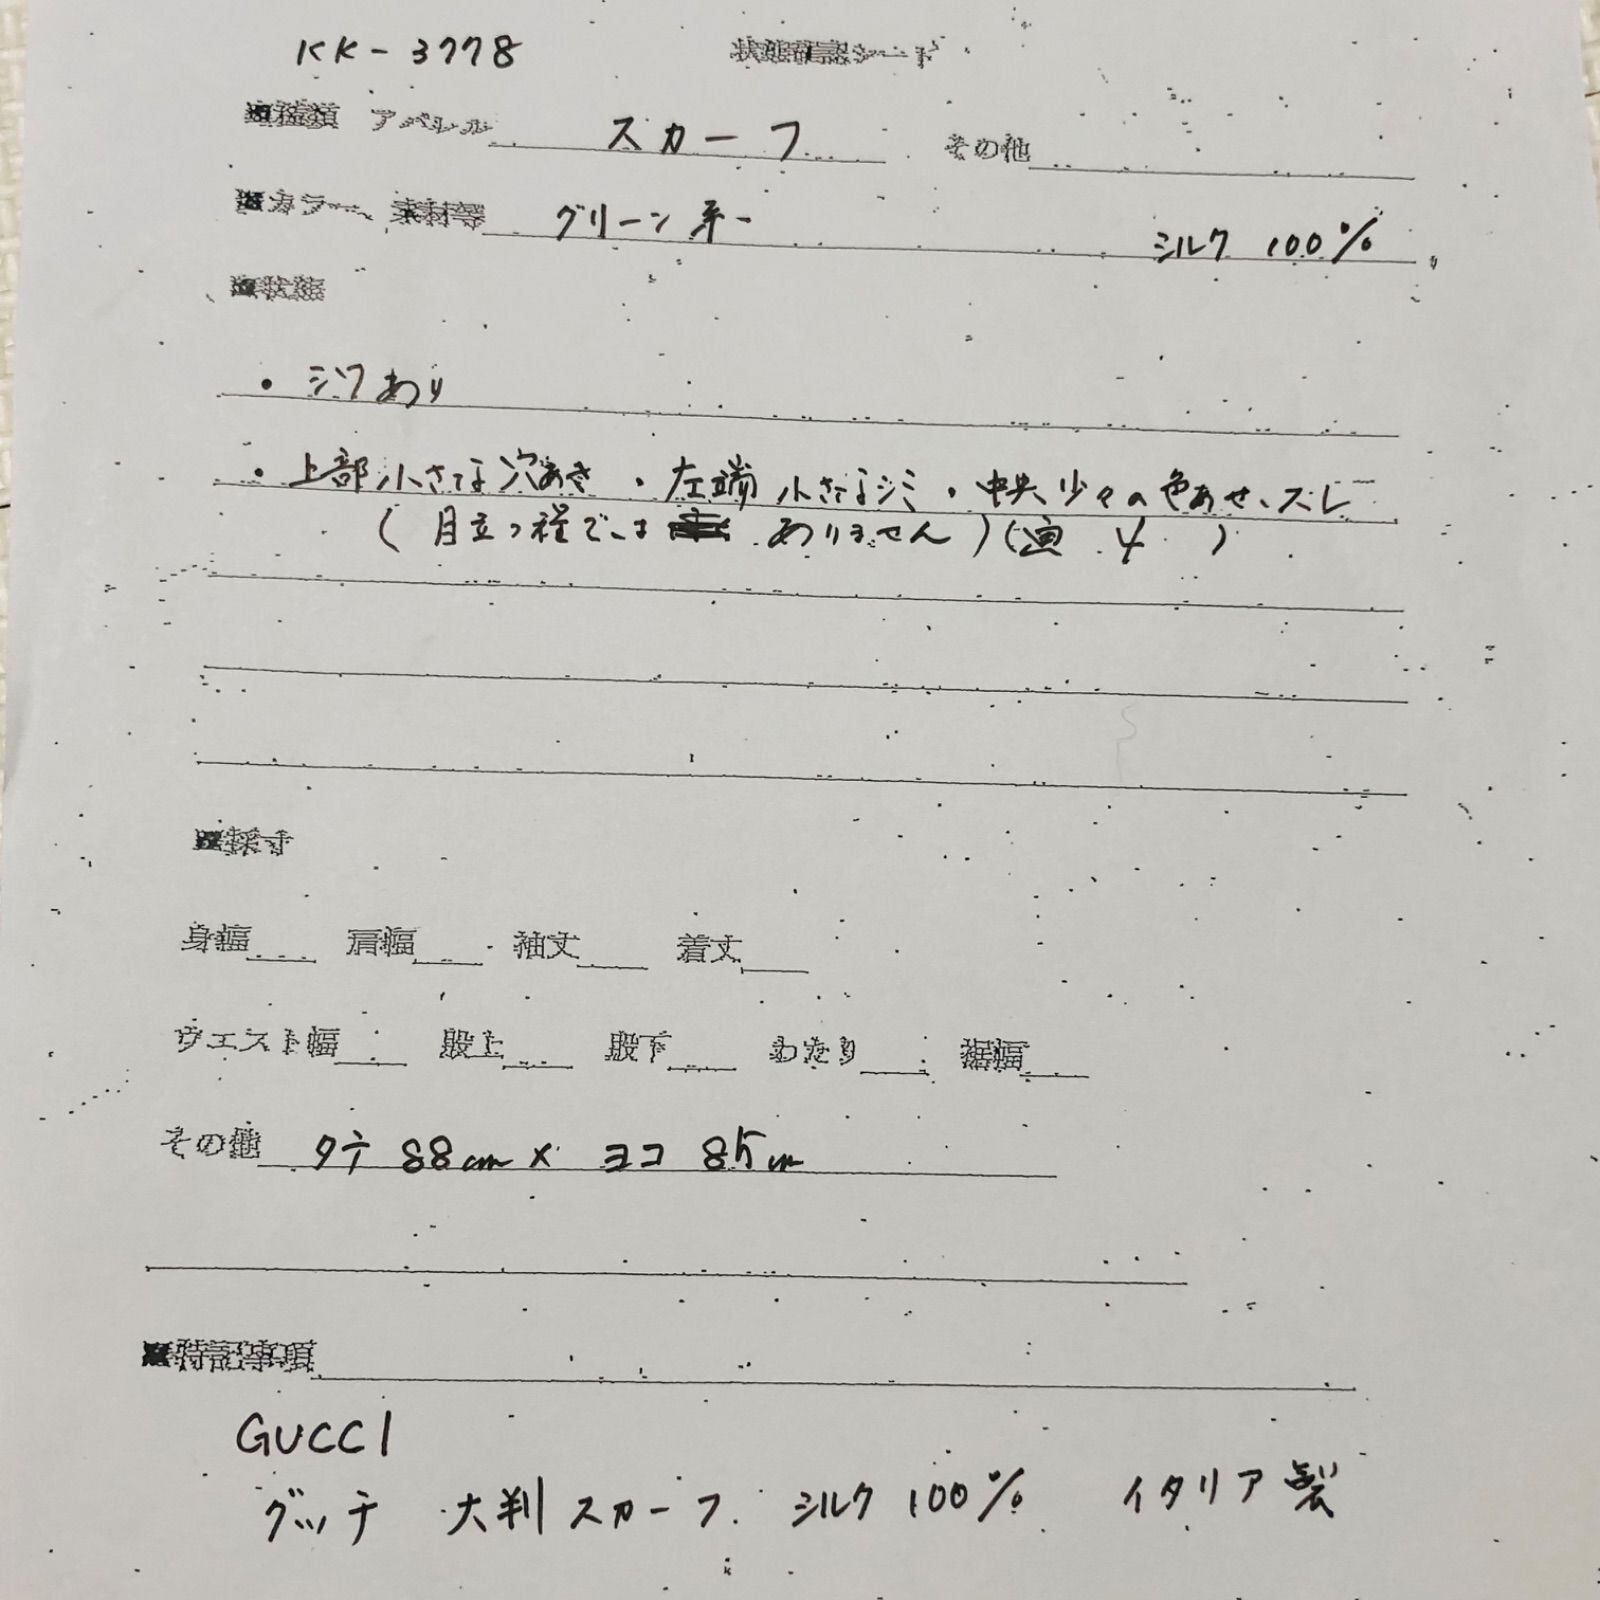 KK-3778 状態確認シート
■種類 アパレル スカーフ その他
■カラー、素材等 グリーン系 シルク 100%
■状態
・シワあり
・上部小さな穴あき・左端小さなシミ・中央少々の色あせ、スレ
(目立つ程では ありません)(画 4 )
■採寸
身幅 肩幅 袖丈 着丈
ウエスト幅 股上 股下 わたり 裾幅
その他 タテ 88cm × ヨコ 85cm
■特記事項
GUCCI
グッチ 大判スカーフ シルク 100% イタリア製